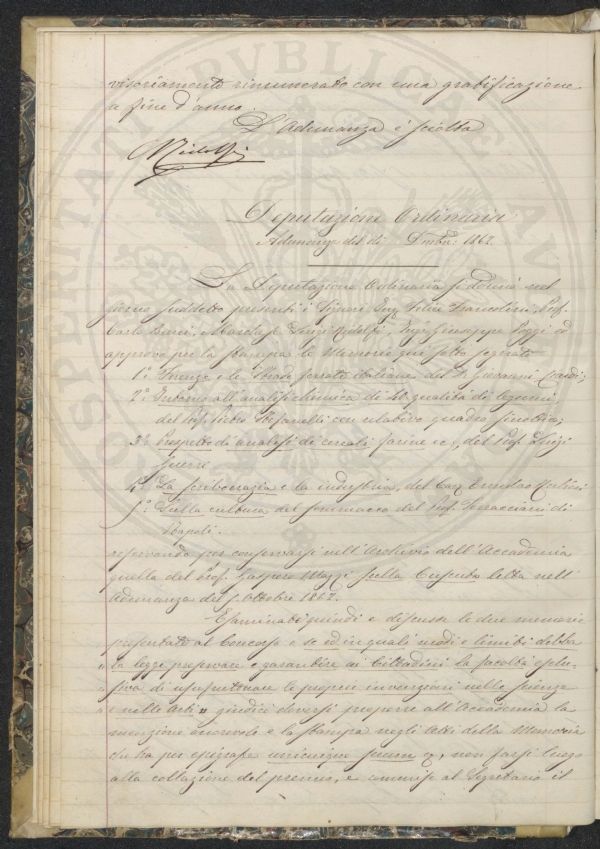 visoriamente rimunerato con una gratificazione
a fine d'anno.
L'Adunanza è sciolta
Ridolfi
Deputazione Ordinaria
Adunanza del dì Dmbr: 1862.
La Deputazione Ordinaria si adunò nel
giorno suddetto presenti i Signori Ing. Felice Francolini, Prof.
Carlo March. Luigi Ridolfi, Ing. Giuseppe Poggi ed
approvò per la stampa le Memorie qui sotto segnate
1.° Firenze e le Strade ferrate italiane del D. Giovanni
2.° Intorno all'analisi chimica di 40 qualità di legumi,
del Prof. Pietro Stefanelli con relativo quadro sinottico;
3.° Prospetto di analisi di cereali farine ec, del Prof. Luigi
Guerri
4.° La scribocrazia e la industria, del Cav. Ermolao Rubini
5.° Sulla cultura del sommacco del Prof. di
Napoli.
reservando per conservarsi nell'Archivio dell'Accademia
quella del Prof. Gaspero Mazzi sulla Cuscuta letta nell'
Adunanza del 5. Ottobre 1862.
Esaminate quindi e discusse le due memorie
presentate al Concorso e se ed in quali modi e limiti debba
" la legge preservare e garantire ai Cittadini la facoltà esclu-
" siva di usufruttuare le proprie invenzioni nelle scienze
" e nelle Arti " giudicò doversi proporre all'Accademia la
menzione onorevole e la stampa negli Atti della Memoria
che ha per epigrafe unicuique suum &, non farsi luogo
alla collazione del premio, e commise al Segretario il